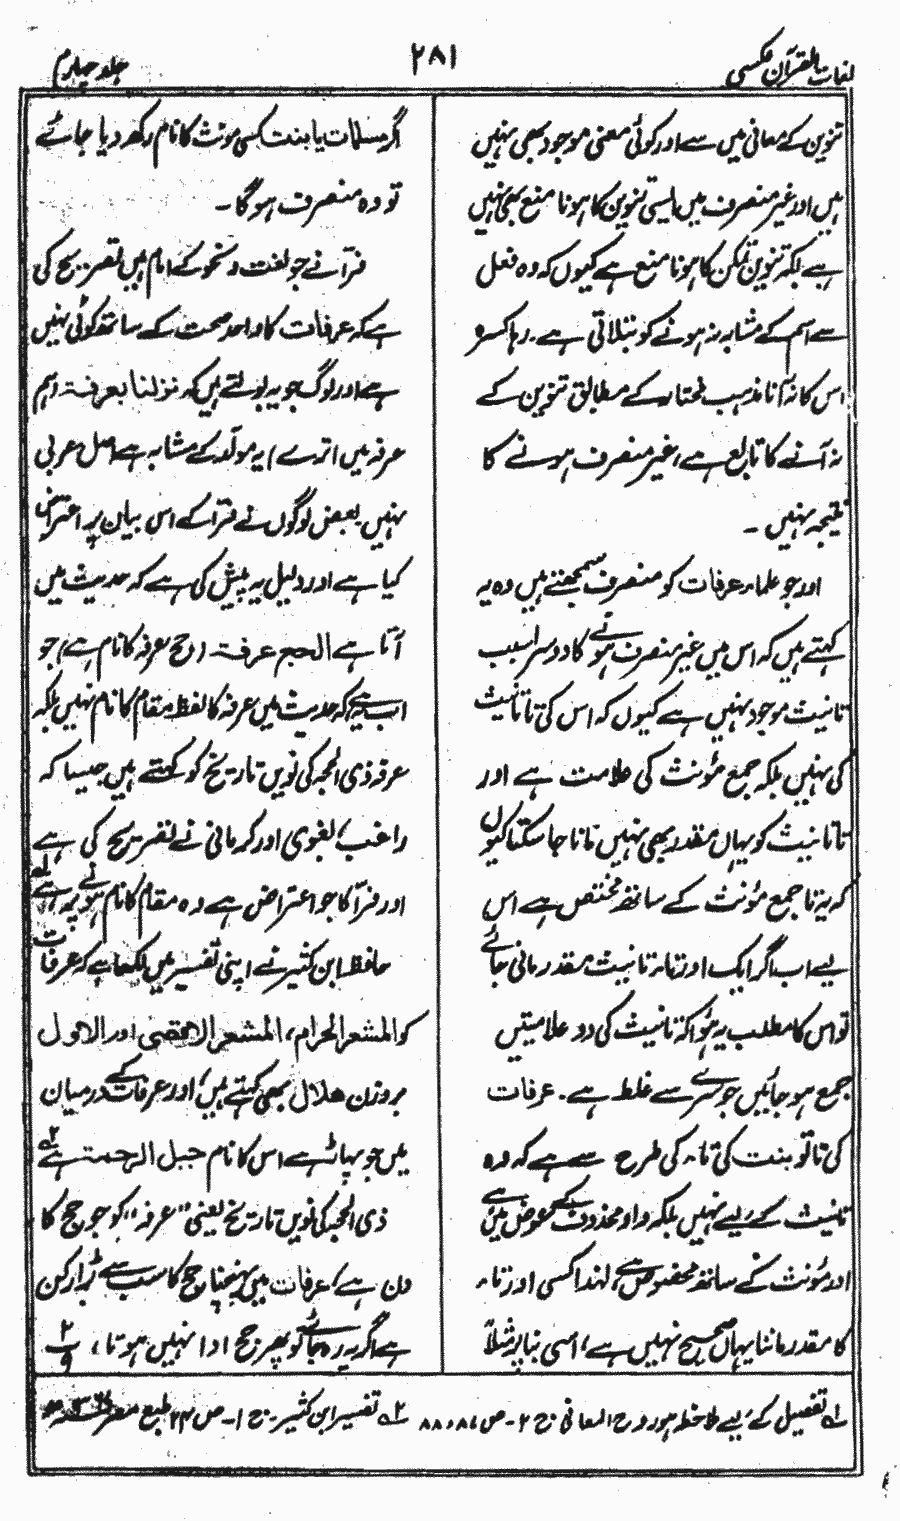 لغات القرآن عکسی
۲۸۱
جلد چہارم
تنوین کے معانی میں سے اور کوئی معنی موجود بھی نہیں
ہیں اور غیر منصرف میں ایسی تنوین کا ہونا منع بھی نہیں
ہے بلکہ تنوین تمکن کا ہونا منع ہے کیوں کہ وہ فعل
سے اسم کے مشابہ نہ ہونے کو بتلاتی ہے۔ رہا کسرہ
اس کا نہ آنا مذہب مختار کے مطابق تنوین کے
نہ آنے کا تابع ہے، غیر منصرف ہونے کا
نتیجہ نہیں ۔
اور جو علماء عرفات کو منصرف سمجھتے ہیں وہ یہ
کہتے ہیں کہ اس میں غیر منصرف ہونے کا دوسرا سبب
تانیث موجود نہیں ہے کیوں کہ اس کی تا تانیث
کی نہیں بلکہ جمع مؤنث کی علامت ہے اور
تا تانیث کو یہاں مقدر بھی نہیں مانا جا سکتا کیوں
کہ یہ تا جمع مؤنث کے ساتھ مختص ہے اس
لیے اب اگر ایک اور تا تانیث مقدر مانی جائے
تو اس کا مطلب یہ ہوا کہ تانیث کی دو علامتیں
جمع ہو جائیں جو سرے سے غلط ہے۔ عرفات
کی تا تو بنت کی تاء کی طرح سے ہے کہ وہ
تانیث کے لیے نہیں بلکہ واو محذوف کے عوض میں ہے
اور مؤنث کے ساتھ مخصوص ہے، لہٰذا کسی اور تاء
کا مقدر ماننا یہاں صحیح نہیں ہے، اسی بنا پر مثلاً
اگر مسلمات یا بنت کسی مونث کا نام رکھ دیا جائے
تو وہ منصرف ہوگا ۔
فرّاء نے جو لغت و نحو کے امام ہیں تصریح کی
ہے کہ عرفات کا واحد صحت کے ساتھ کوئی نہیں
ہے اور لوگ جو یہ بولتے ہیں کہ نزلنا بعرفۃ (ہم
عرفہ میں اترے) یہ مولّد کے مشابہ ہے اصل عربی
نہیں بعض لوگوں نے فرّاء کے اس بیان پر اعتراض
کیا ہے اور دلیل یہ پیش کی ہے کہ حدیث میں
آتا ہے الحج عرفۃ (حج عرفہ کا نام ہے) جو
اب یہ ہے کہ حدیث میں عرفہ کا لفظ مقام کا نام نہیں بلکہ
عرفہ ذی الحجہ کی نویں تاریخ کو کہتے ہیں جیسا کہ
راغب، بغوی اور کرمانی نے تصریح کی ہے
اور فرّاء کا جو اعتراض ہے وہ مقام کا نام ہونے پر ہے لہ
حافظ ابن کثیر نے اپنی تفسیر میں لکھا ہے کہ عرفات
کو المشعر الحرام، المشعر الاقصیٰ اور الاول
بروزن ھلال بھی کہتے ہیں، اور عرفات کے درمیان
میں جو پہاڑ ہے اس کا نام جبل الرحمۃ ہے ۲ہ
ذی الحجہ کی نویں تاریخ یعنی "عرفہ" کو جو حج کا
دن ہے، عرفات میں پہنچنا حج کا سب سے بڑا رکن
ہے اگر یہ رہ جائے تو پھر حج ادا نہیں ہوتا ، ۲/۹
۱ہ تفصیل کے لیے ملاحظہ ہو روح المعانی ج ۲-ص ۸۷، ۸۸ ۲ہ تفسیر ابن کثیر-ج ۱-ص ۲۴۲ طبع مصر